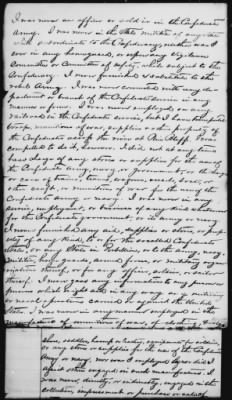 I was never an officer or soldier in the Confederate
Army. I was never in the State militia of any state
while subordinate to the Confederacy; neither was I
ever in any homeguard, or upon any Vigilance
Committee or Committee of Safety, while subject to the
Confederacy. I never furnished a substitute to the
rebel Army. I never was connected with any de-
partment or branch of the Confederate service in any
manner or form. I was never employed on any
railroad in the Confederate service, but I have transported
troops, munitions of war, supplies or other property of
the Confederate
compelled to do it, however. I did not at any time
have charge of any stores or supplies for the use of
the Confederate Army, navy, or government; or the charge
or of teams, wagons, vessels,
other craft, or munitions of war for the use of the
Confederate Army or navy. I was never in any
service, employment, or business of any kind whatever
for the Confederate government, or its army or navy.
I never furnished any aid, supplies or stores, or prop-
erty of any kind, to or for the so-called Confederate
States, or any State in rebellion, or to the army, navy,
militia, home guards, armed forces, or military organ-
ization thereof, or for any officer, soldier, or sailor
thereof. I never gave information to any person or
persons which might aid in any way any military
or naval operations carried on against the United
States. I was never in any manner employed in the
manufacture of munitions of war, of clothing, boots,
shoes, saddles, harness or leather, equipments for soldiers,
or any stores or supplies for the use of the Confederate
Army or navy, nor was I employed
engaged in such manufacture. I
was never, directly or indirectly, engaged in the
collection, impressment or purchase or sale of